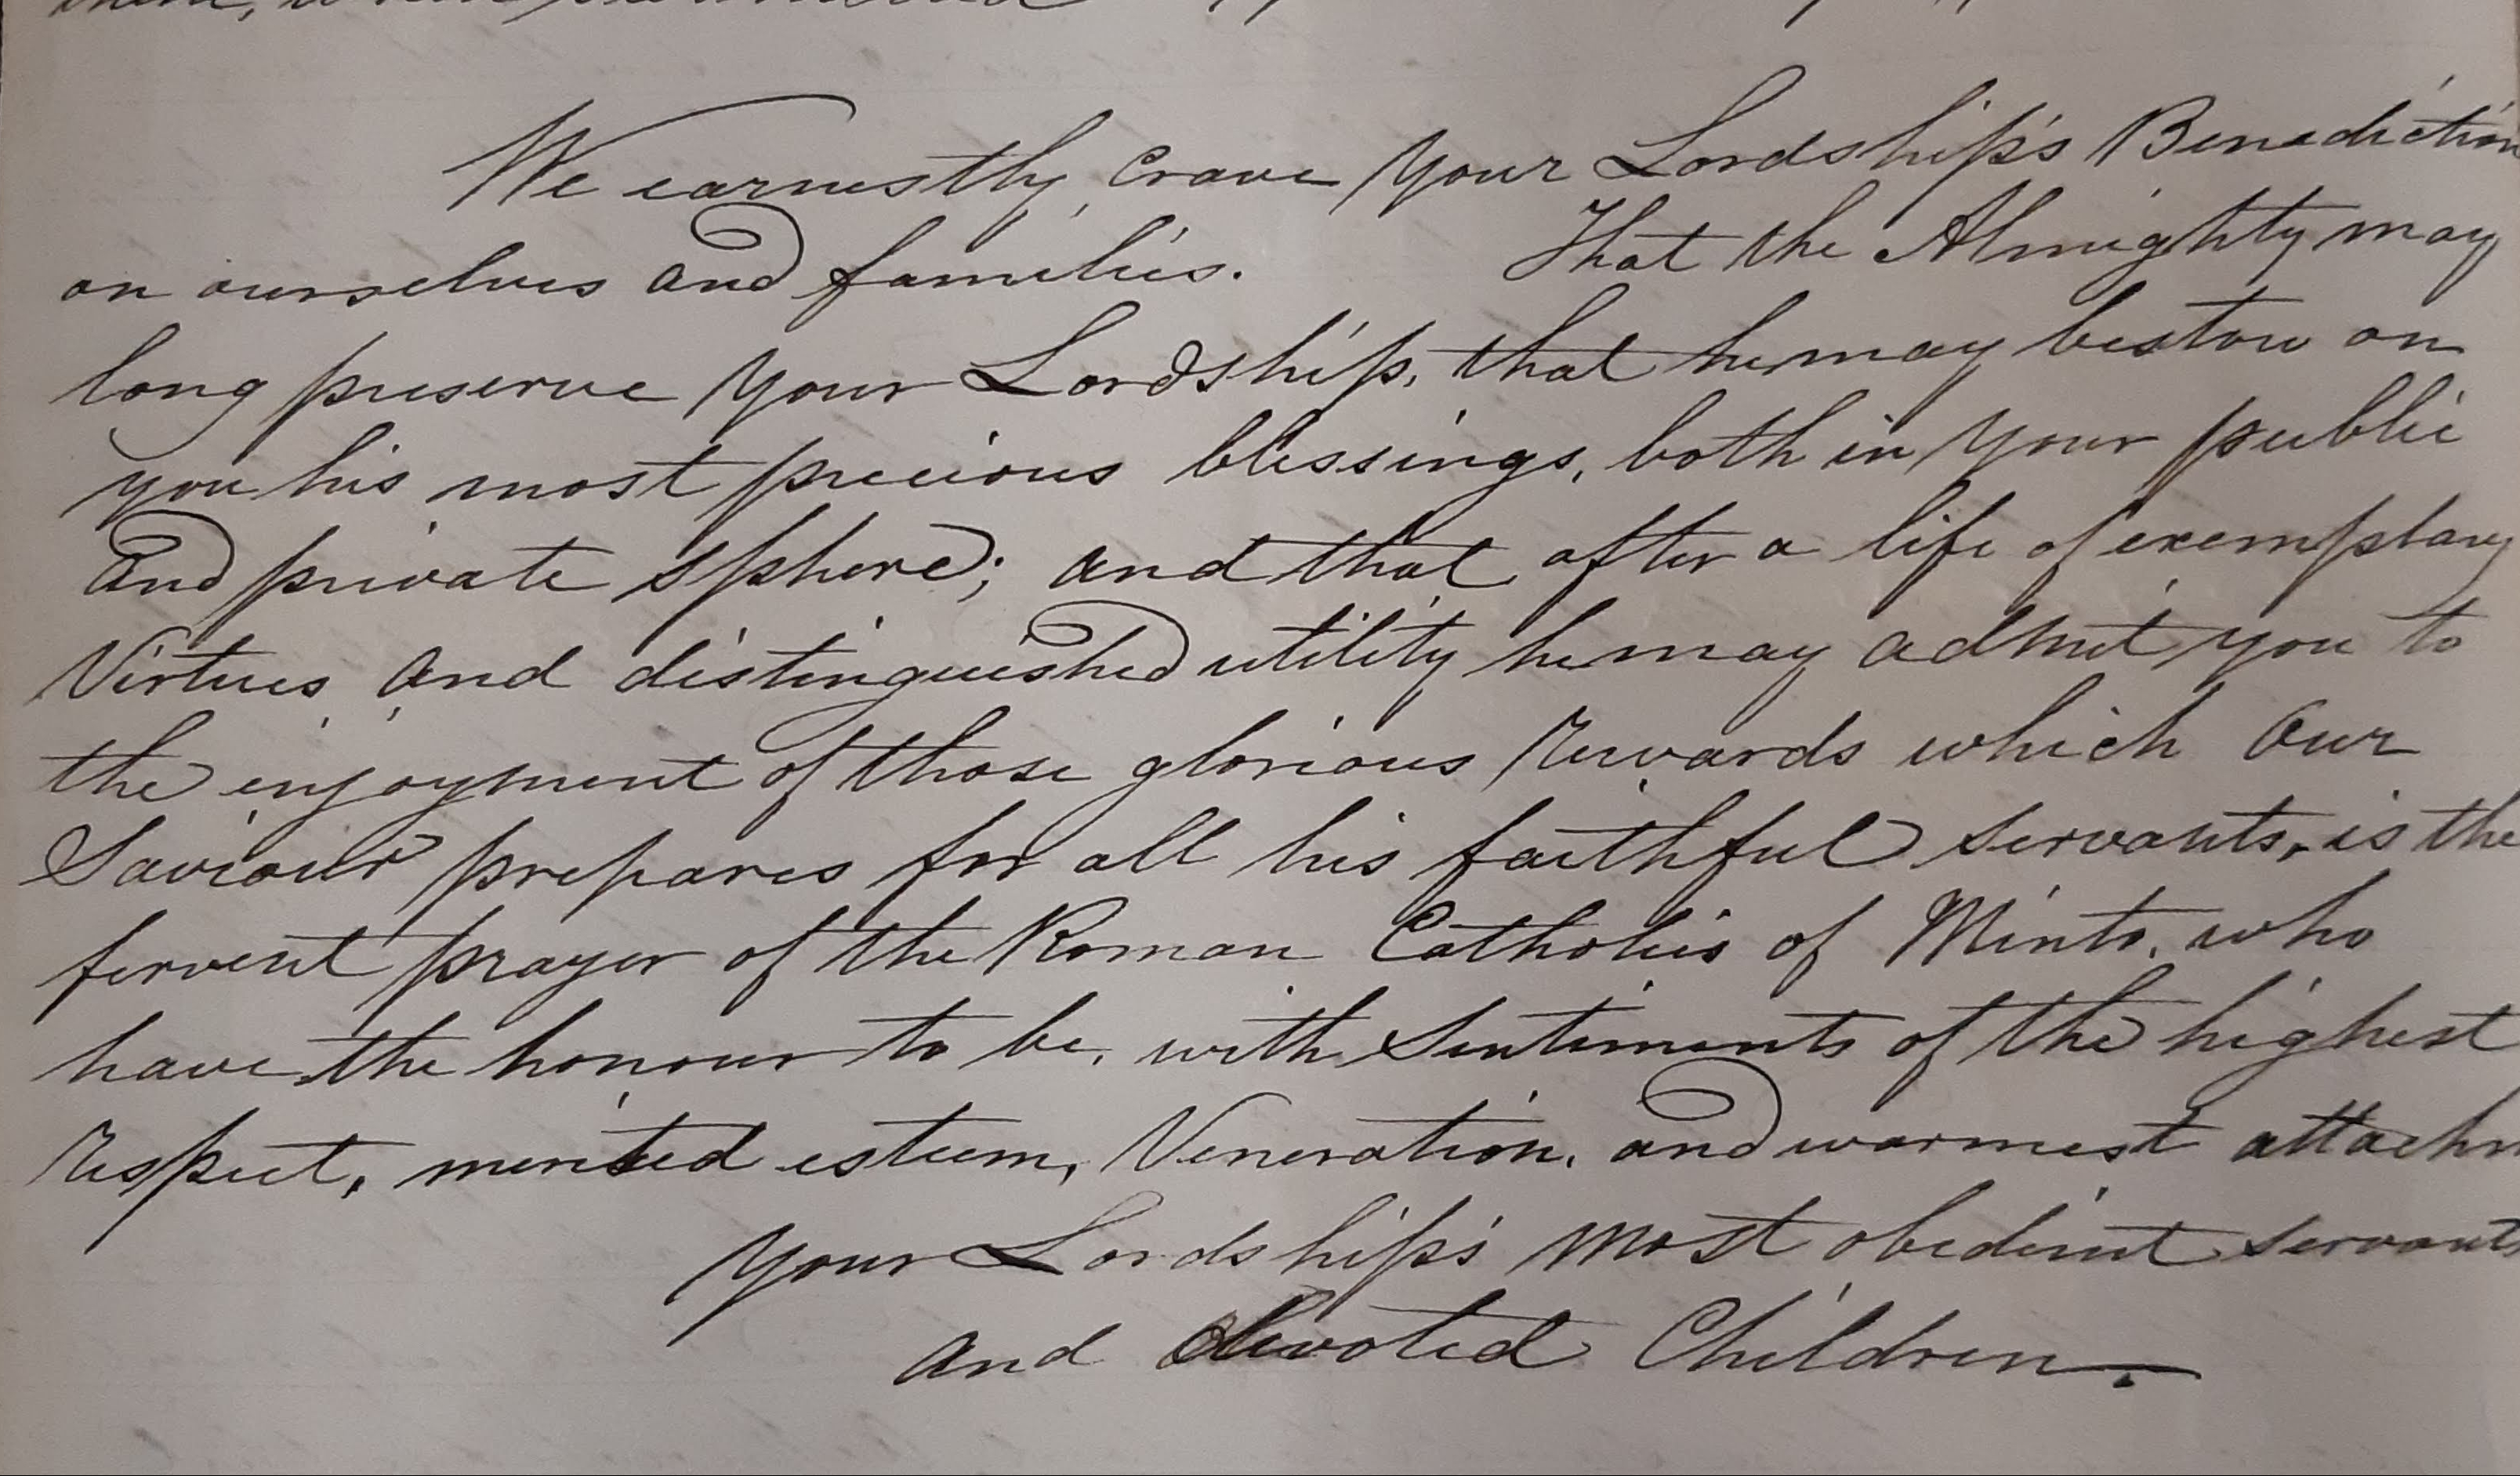 We earnestly crave your Lordship's Benediction
on ourselves and families. That the Almighty may
long preserve your Lordship, that he may bestow on
you his most precious blessings, both in your public
and private sphere; and that after a life of exemplary
Virtues and distinguished utility he may admit you to
the enjoyment of those glorious rewards which Our
Saviour prepares for all his faithful servants, is the
fervent prayer of the Roman Catholics of Minto, who
have the honour to be, with Sentiments of the highest
respect, merited esteem, Veneration, and warmest attachm
Your Lordship's most obedient servant
and devoted Children.